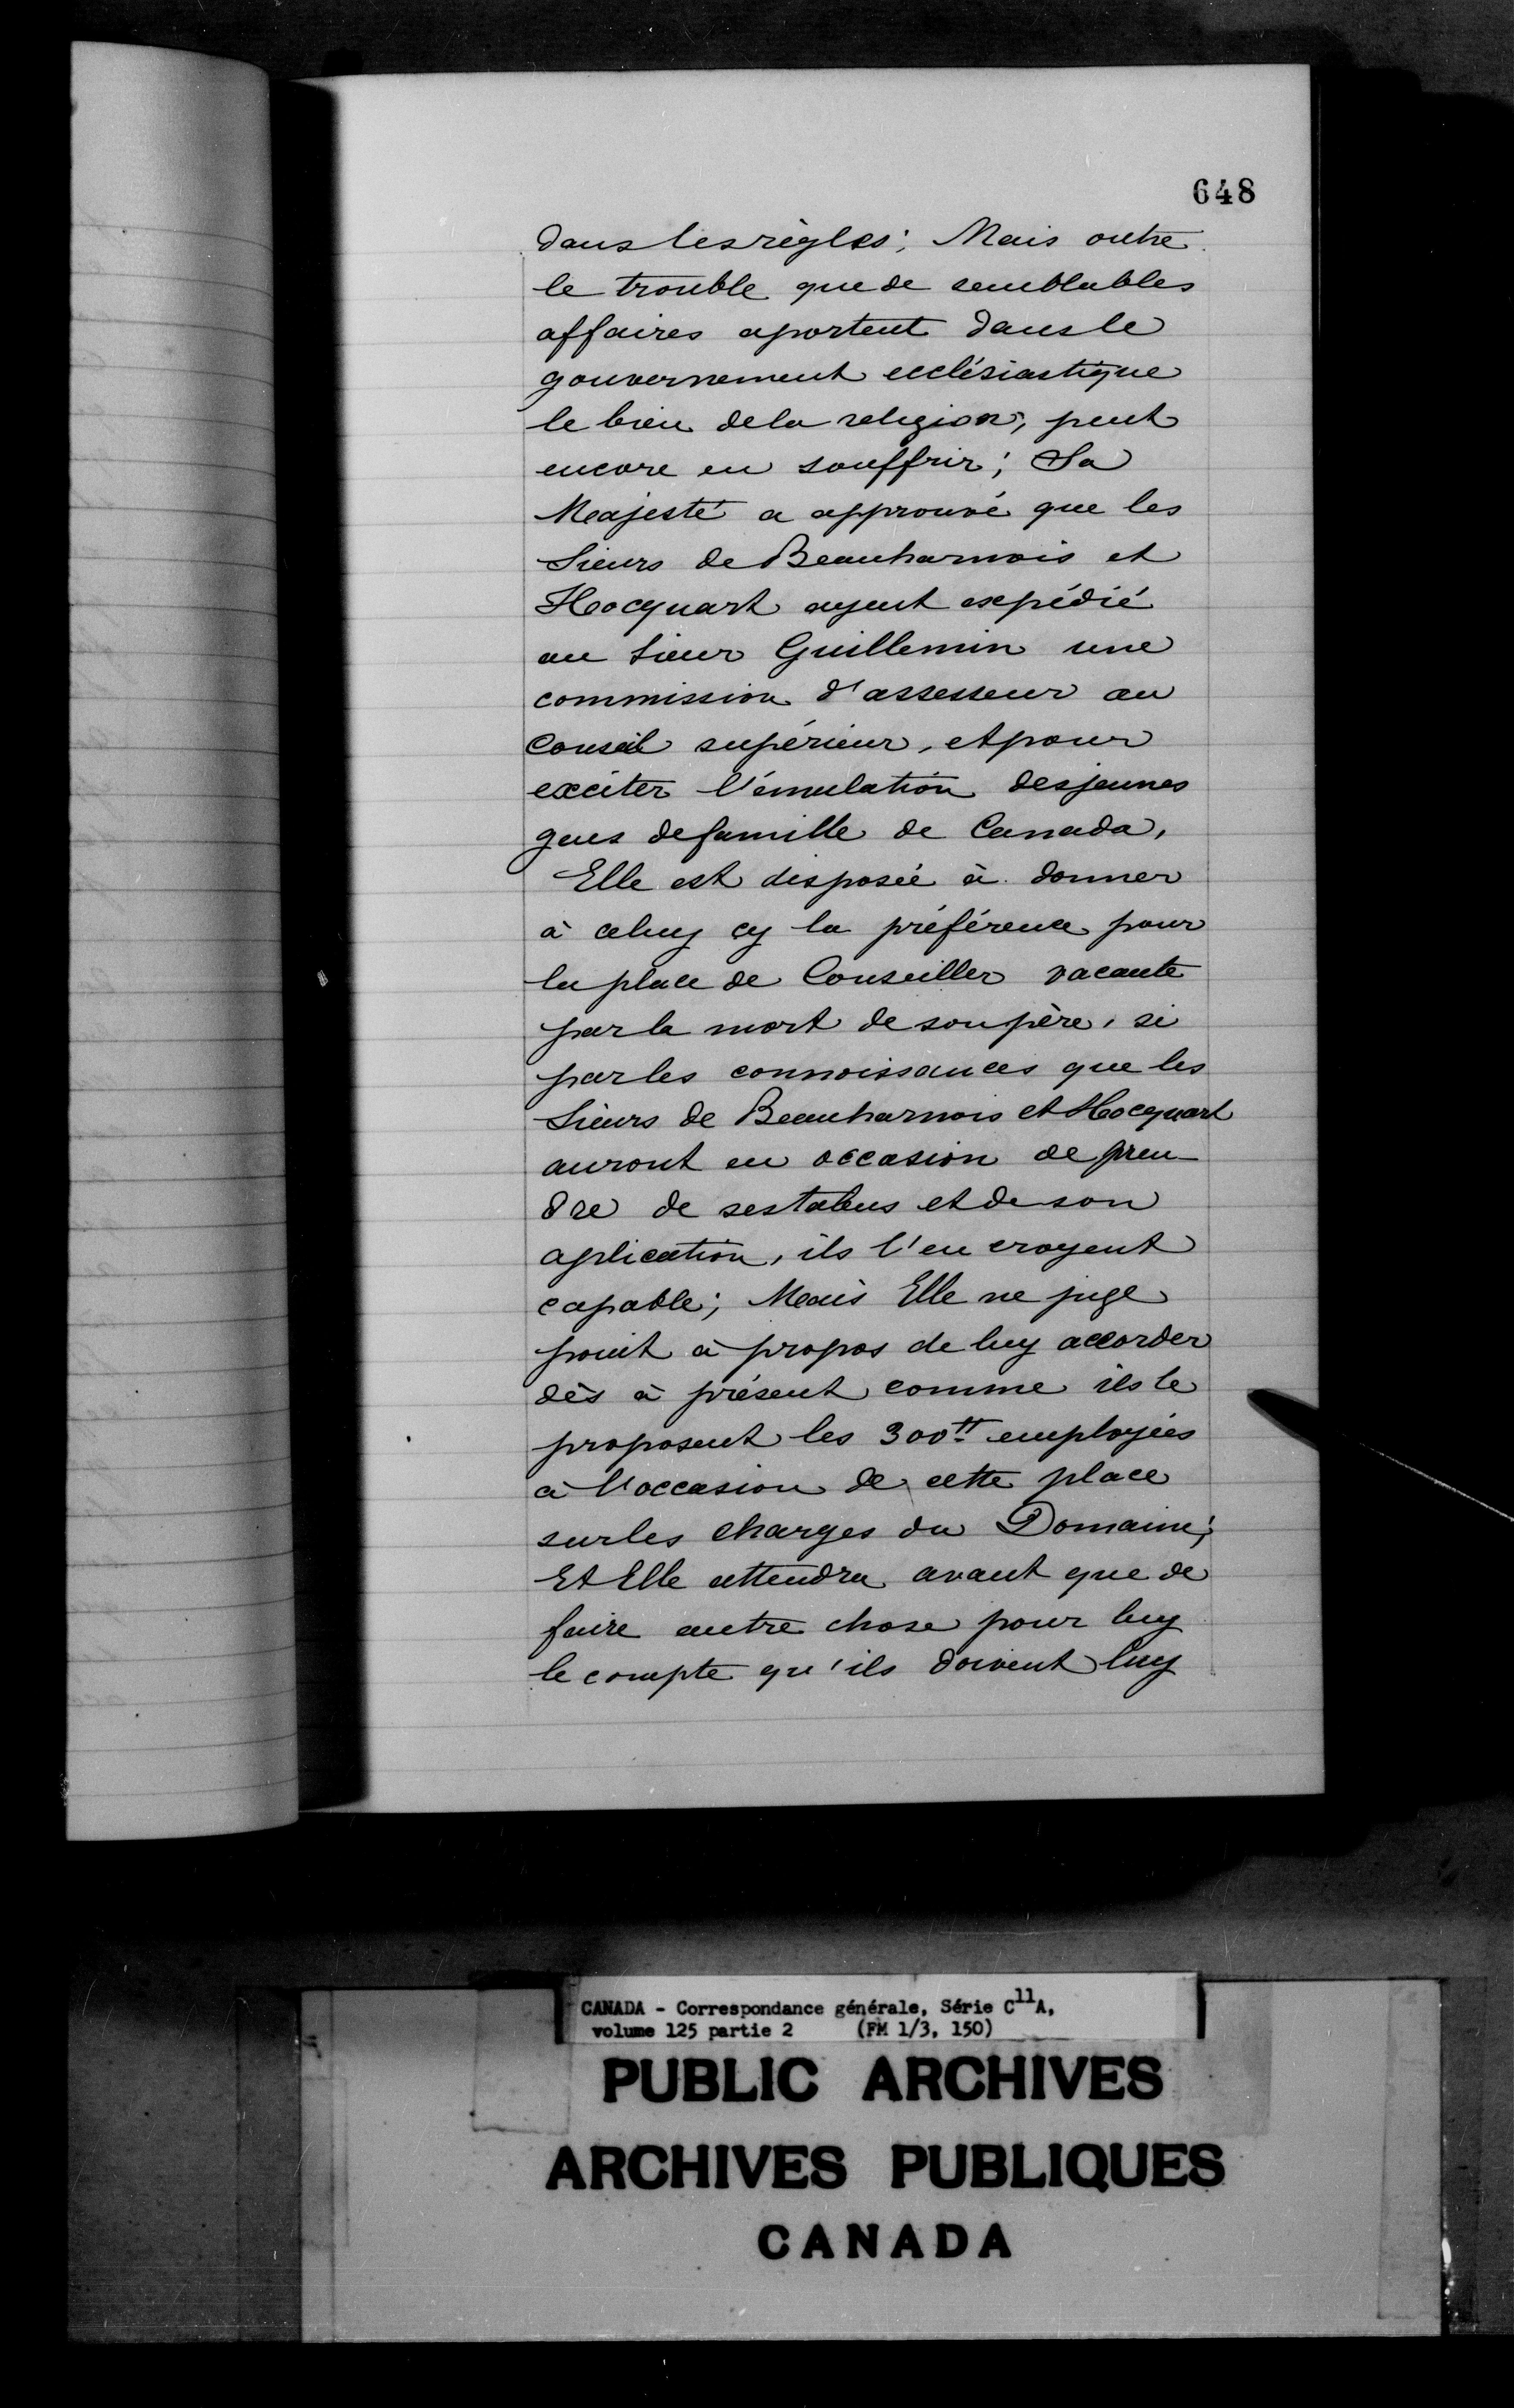 648
dans les règles; Mais outre
le trouble que de semblables
affaires aportent dans le
gouvernement ecclésiastique
le bien de la religion, peut
encore en souffrir; Sa
Majesté a approuvé que les
Sieurs de Beauharnois et
Hocquart ayent expédié
au Sieur Guillemin une
commission d'assesseur au
Conseil supérieur, et pour
exciter l'émulation des jeunes
gens de famille de Canada,
Elle est disposée à donner
à celuy cy la préférence pour
la place de Conseiller vacante
par la mort de son père, si
par les connoissances que les
Sieurs de Beauharnois et Hocquart
auront eu occasion de pren-
dre de ses talens et de son
aplication, ils l'en croyent
capable; Mais Elle ne juge
point à propos de luy accorder
dès à présent comme ils le
proposent les 300tt employées
à l'occasion de cette place
sur les charges du Domaine;
Et Elle attendra avant que de
faire autre chose pour luy
le compte qu'ils doivent luy
CANADA - Correspondance générale, Série C11A,
volume 125 partie 2 (FM 1/3, 150)
PUBLIC ARCHIVES
ARCHIVES PUBLIQUES
CANADA